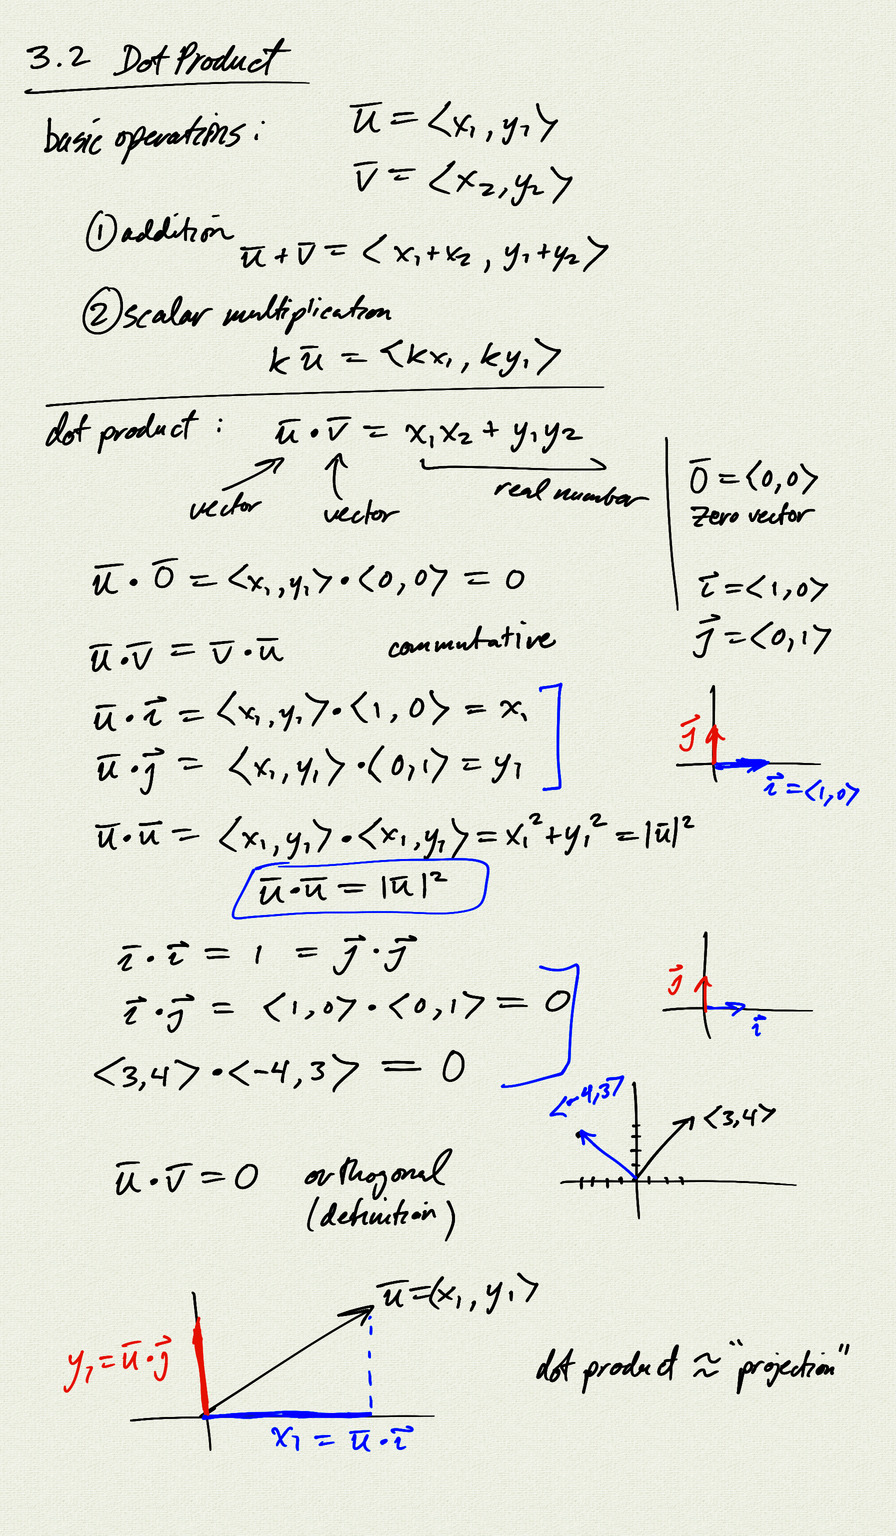 3.2 Dot Product
basic operations:
u̅ = <x₁, y₁>
v̅ = <x₂, y₂>
① addition
u̅ + v̅ = <x₁+x₂, y₁+y₂>
② scalar multiplication
k u̅ = <kx₁, ky₁>
dot product: u̅ · v̅ = x₁x₂ + y₁y₂
vector
vector
real number
0̅ = <0,0>
zero vector
i⃗ = <1,0>
j⃗ = <0,1>
u̅ · 0̅ = <x₁, y₁> · <0,0> = 0
u̅ · v̅ = v̅ · u̅ commutative
u̅ · i⃗ = <x₁, y₁> · <1,0> = x₁
u̅ · j⃗ = <x₁, y₁> · <0,1> = y₁
j⃗
i⃗ = <1,0>
u̅ · u̅ = <x₁, y₁> · <x₁, y₁> = x₁² + y₁² = |u̅|²
u̅ · u̅ = |u̅|²
i⃗ · i⃗ = 1 = j⃗ · j⃗
i⃗ · j⃗ = <1,0> · <0,1> = 0
<3,4> · <-4,3> = 0
j⃗
i⃗
<-4,3>
<3,4>
u̅ · v̅ = 0 orthogonal
(definition)
u̅ = <x₁, y₁>
y₁ = u̅ · j⃗
x₁ = u̅ · i⃗
dot product ≈ "projection"